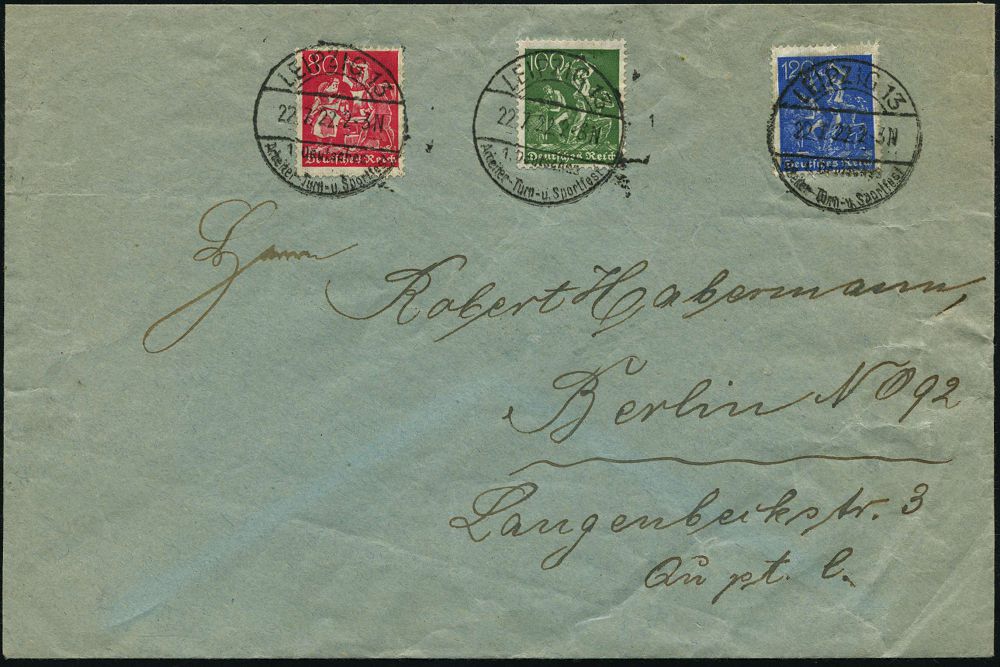 80
100
120
LEIPZIG 13
22.7.22.2-3N
1. Deutsches
Arbeiter-Turn-u. Sportfest
Deutsches Reich
LEIPZIG 13
22.7.22.2-3N
1. Deutsches
Arbeiter-Turn-u. Sportfest
Deutsches Reich
LEIPZIG 13
22.7.22.2-3N
1. Deutsches
Arbeiter-Turn-u. Sportfest
Deutsches Reich
1
Herrn
Robert Habermann,
Berlin NO 92
Langenbeckstr. 3
pt. l.